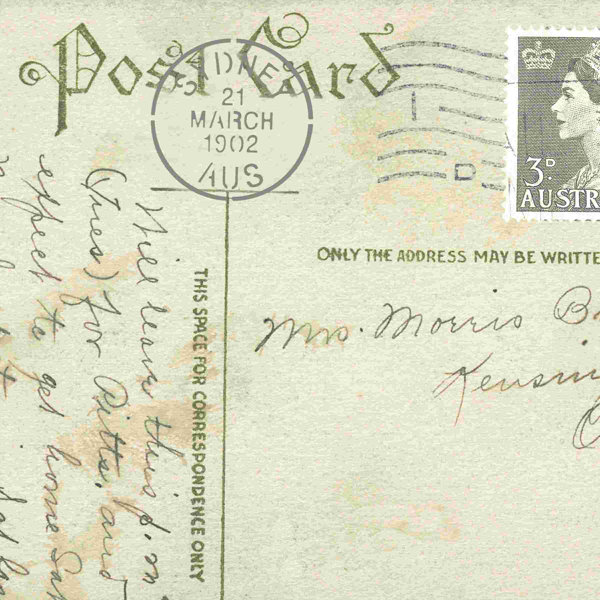 Post Card
SYDNEY
21
MARCH
1902
AUS
3D.
AUSTR
ONLY THE ADDRESS MAY BE WRITTE
THIS SPACE FOR CORRESPONDENCE ONLY
Mrs. Morris B
Kensin
Will leave this p.m
(Tues) for Pitts. and
expect to get home Sat